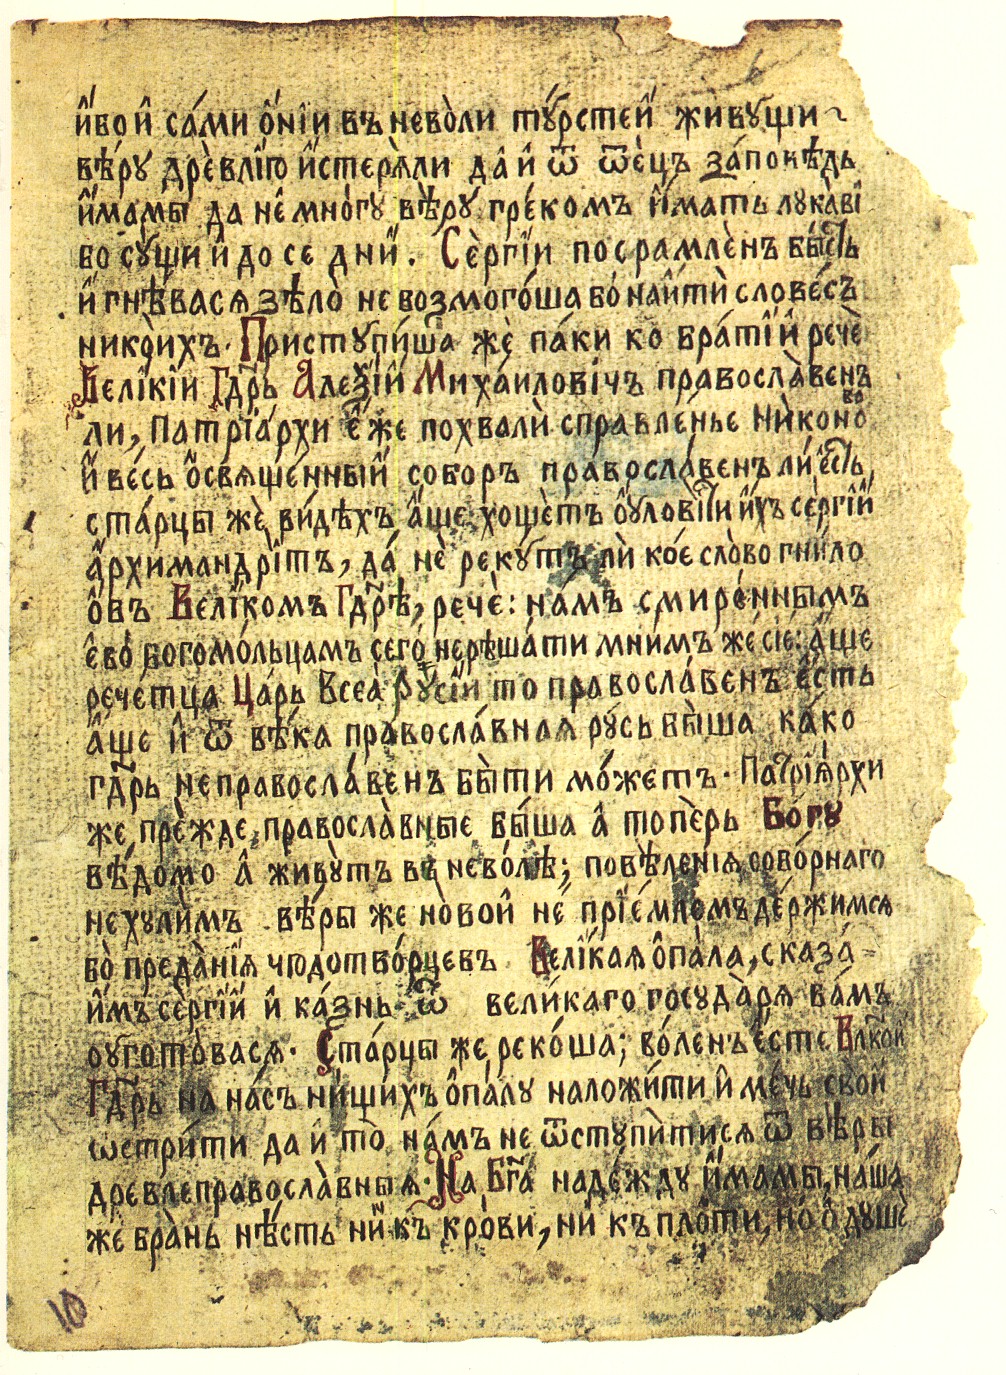 и҆́бо и҆ са́ми ѻ҆ні́и въ нево̀ли ту́рстеи҆ живущи
вѣ́ру дрѐвлюю и҆стеря̀ли да̀ и҆ ѿ ѿе́цъ за́повѣдь
и҆́мамы да не мно́гу вѣ̀ру гре́комъ и҆́мать лука̀ві
бо су́щи и҆ до се дни́. Сѐргіи посрамлѐнъ бы́сть
и҆ гнѣ́вася зѣло̀ не возмого́ша бо наи҆тѝ слове́съ
нико́ихъ. Приступи́ша жѐ па́ки ко бра́тіи҆ речѐ
Вели́кіи Гдⷭ҇рь Алеѯі́и Миха́иловічъ правосла̀венъ
ли, Патріа́рхи є҆́же похвалѝ справле́нье Нико́ново
и҆ ве́сь ѻ҆свяще́нныи҆ соборъ правосла́венъ ли є҆́сть,
ста́рцы жѐ ви́дѣхъ а҆́ще хощѐтъ ѹ҆лови́ти и҆́хъ се́ргіи҆
а҆рхимандрі́тъ, да́ нѐ реку́тъ лѝ ко́е сло̀во гни́ло
ѻ҆бъ Вели́комъ Гдⷭ҇рѣ, речѐ: намъ смире́ннымъ
є҆во́ богомо́льцамъ сего́ не рѣша́ти мни́мъ же сіе: а҆́ще
рече́тца Ца́рь Всеа̀ Русі́и то правосла́венъ є҆́сть
а҆́ще и҆ ѿ вѣ́ка правосла́вная ру́сь бы̀ша ка́ко
гдⷭ҇рь неправосла́венъ бы̀ти мо́жетъ. Патрія́рхи
же, прѐжде, правосла̀вные бы́ша а҆ топѐрь Бо́гу
вѣ́домо а҆ живу̀тъ въ нево́лѣ; повѣ́ленія собо́рнаго
не хули́мъ вѣ́ры же но̀вои нѐ пріе́млемъ де́ржимся
бо̀ преда̀нія чюдотво́рцевъ Вели́кая ѻ҆па̀ла, сказа́-
и҆́мъ сѐргіи и҆ ка́знь ѿ вели́каго госуда̀ря ва́мъ
ѹгото̀вася. Ста́рцы же, реко́ша; во́ленъ є҆́сте Влкои
Гдⷭ҇рь на на́съ ни́щихъ ѻ҆па́лу наложи́ти и҆ ме́чь свои́
ѡстри́ти да и҆ то̀ на́мъ не ѿступи̇тися ѿ вѣ́ры
древлеправосла̀вныя. На Бг҃а наде́жду и҆́мамы, на́ша
же бра̀нь нѣ́сть ни къ кро̀ви, ни къ пло́ти, но ѻ҆ душѐ
10